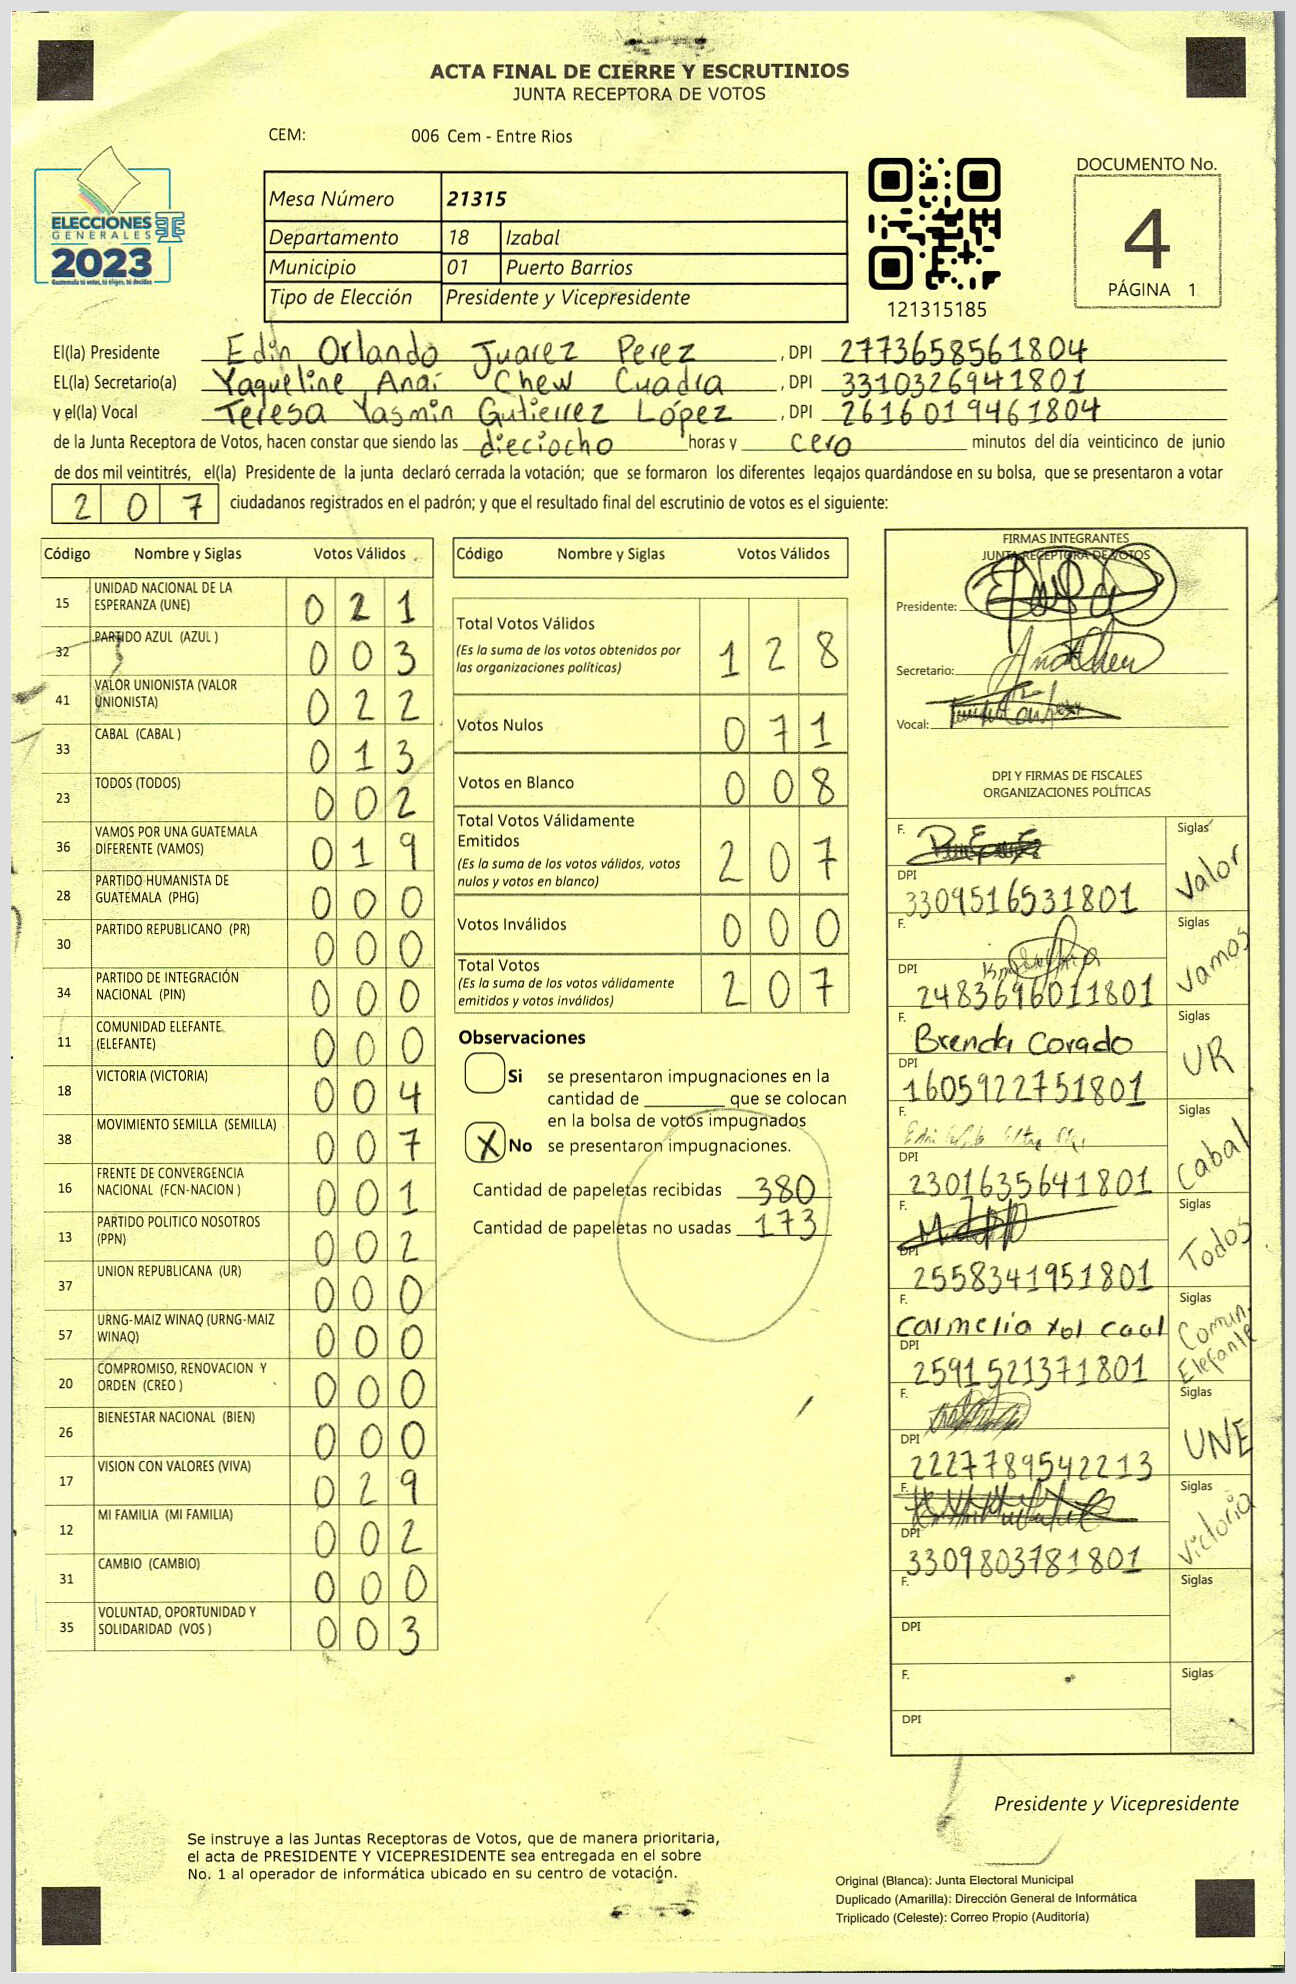 ACTA FINAL DE CIERRE Y ESCRUTINIOS
JUNTA RECEPTORA DE VOTOS
CEM: 006 Cem - Entre Rios
ELECCIONES
GENERALES
2023
Guatemala tú votas, tú eliges, tú decides
Mesa Número 21315
Departamento 18 Izabal
Municipio 01 Puerto Barrios
Tipo de Elección Presidente y Vicepresidente
121315185
DOCUMENTO No.
4
PÁGINA 1
El(la) Presidente Edin Orlando Juarez Perez , DPI 2773658561804
EL(la) Secretario(a) Yaqueline Anaí Chew Cuadra , DPI 3310326941801
y el(la) Vocal Teresa Yasmin Gutierrez López , DPI 2616019461804
de la Junta Receptora de Votos, hacen constar que siendo las dieciocho horas y cero minutos del día veinticinco de junio
de dos mil veintitrés, el(la) Presidente de la junta declaró cerrada la votación; que se formaron los diferentes legajos guardándose en su bolsa, que se presentaron a votar
2 0 7 ciudadanos registrados en el padrón; y que el resultado final del escrutinio de votos es el siguiente:
Código Nombre y Siglas Votos Válidos
15 UNIDAD NACIONAL DE LA ESPERANZA (UNE) 0 2 1
32 PARTIDO AZUL (AZUL ) 0 0 3
41 VALOR UNIONISTA (VALOR UNIONISTA) 0 2 2
33 CABAL (CABAL ) 0 1 3
23 TODOS (TODOS) 0 0 2
36 VAMOS POR UNA GUATEMALA DIFERENTE (VAMOS) 0 1 9
28 PARTIDO HUMANISTA DE GUATEMALA (PHG) 0 0 0
30 PARTIDO REPUBLICANO (PR) 0 0 0
34 PARTIDO DE INTEGRACIÓN NACIONAL (PIN) 0 0 0
11 COMUNIDAD ELEFANTE (ELEFANTE) 0 0 0
18 VICTORIA (VICTORIA) 0 0 4
38 MOVIMIENTO SEMILLA (SEMILLA) 0 0 7
16 FRENTE DE CONVERGENCIA NACIONAL (FCN-NACION ) 0 0 1
13 PARTIDO POLITICO NOSOTROS (PPN) 0 0 2
37 UNION REPUBLICANA (UR) 0 0 0
57 URNG-MAIZ WINAQ (URNG-MAIZ WINAQ) 0 0 0
20 COMPROMISO, RENOVACION Y ORDEN (CREO ) 0 0 0
26 BIENESTAR NACIONAL (BIEN) 0 0 0
17 VISION CON VALORES (VIVA) 0 2 9
12 MI FAMILIA (MI FAMILIA) 0 0 2
31 CAMBIO (CAMBIO) 0 0 0
35 VOLUNTAD, OPORTUNIDAD Y SOLIDARIDAD (VOS ) 0 0 3
Código Nombre y Siglas Votos Válidos
Total Votos Válidos 1 2 8
(Es la suma de los votos obtenidos por
las organizaciones políticas)
Votos Nulos 0 7 1
Votos en Blanco 0 0 8
Total Votos Válidamente
Emitidos 2 0 7
(Es la suma de los votos válidos, votos
nulos y votos en blanco)
Votos Inválidos 0 0 0
Total Votos 2 0 7
(Es la suma de los votos válidamente
emitidos y votos inválidos)
Observaciones
Si se presentaron impugnaciones en la
cantidad de ________ que se colocan
en la bolsa de votos impugnados
X No se presentaron impugnaciones.
Cantidad de papeletas recibidas 380
Cantidad de papeletas no usadas 173
FIRMAS INTEGRANTES
JUNTA RECEPTORA DE VOTOS
Presidente:
Secretario:
Vocal:
DPI Y FIRMAS DE FISCALES
ORGANIZACIONES POLÍTICAS
F. Siglas Valor
DPI 3309516531801
F. Siglas Vamos
DPI 2483696011801
F. Brenda Corado Siglas UR
DPI 1605922751801
F. Siglas Cabal
DPI 2301635641801
F. Siglas Todos
DPI 2558341951801
F. Carmelia xol caal Siglas Comun. Elefante
DPI 2591521371801
F. Siglas UNE
DPI 2227789542213
F. Siglas Victoria
DPI 3309803781801
F. Siglas
DPI
F. Siglas
DPI
Presidente y Vicepresidente
Se instruye a las Juntas Receptoras de Votos, que de manera prioritaria,
el acta de PRESIDENTE Y VICEPRESIDENTE sea entregada en el sobre
No. 1 al operador de informática ubicado en su centro de votación.
Original (Blanca): Junta Electoral Municipal
Duplicado (Amarilla): Dirección General de Informática
Triplicado (Celeste): Correo Propio (Auditoría)